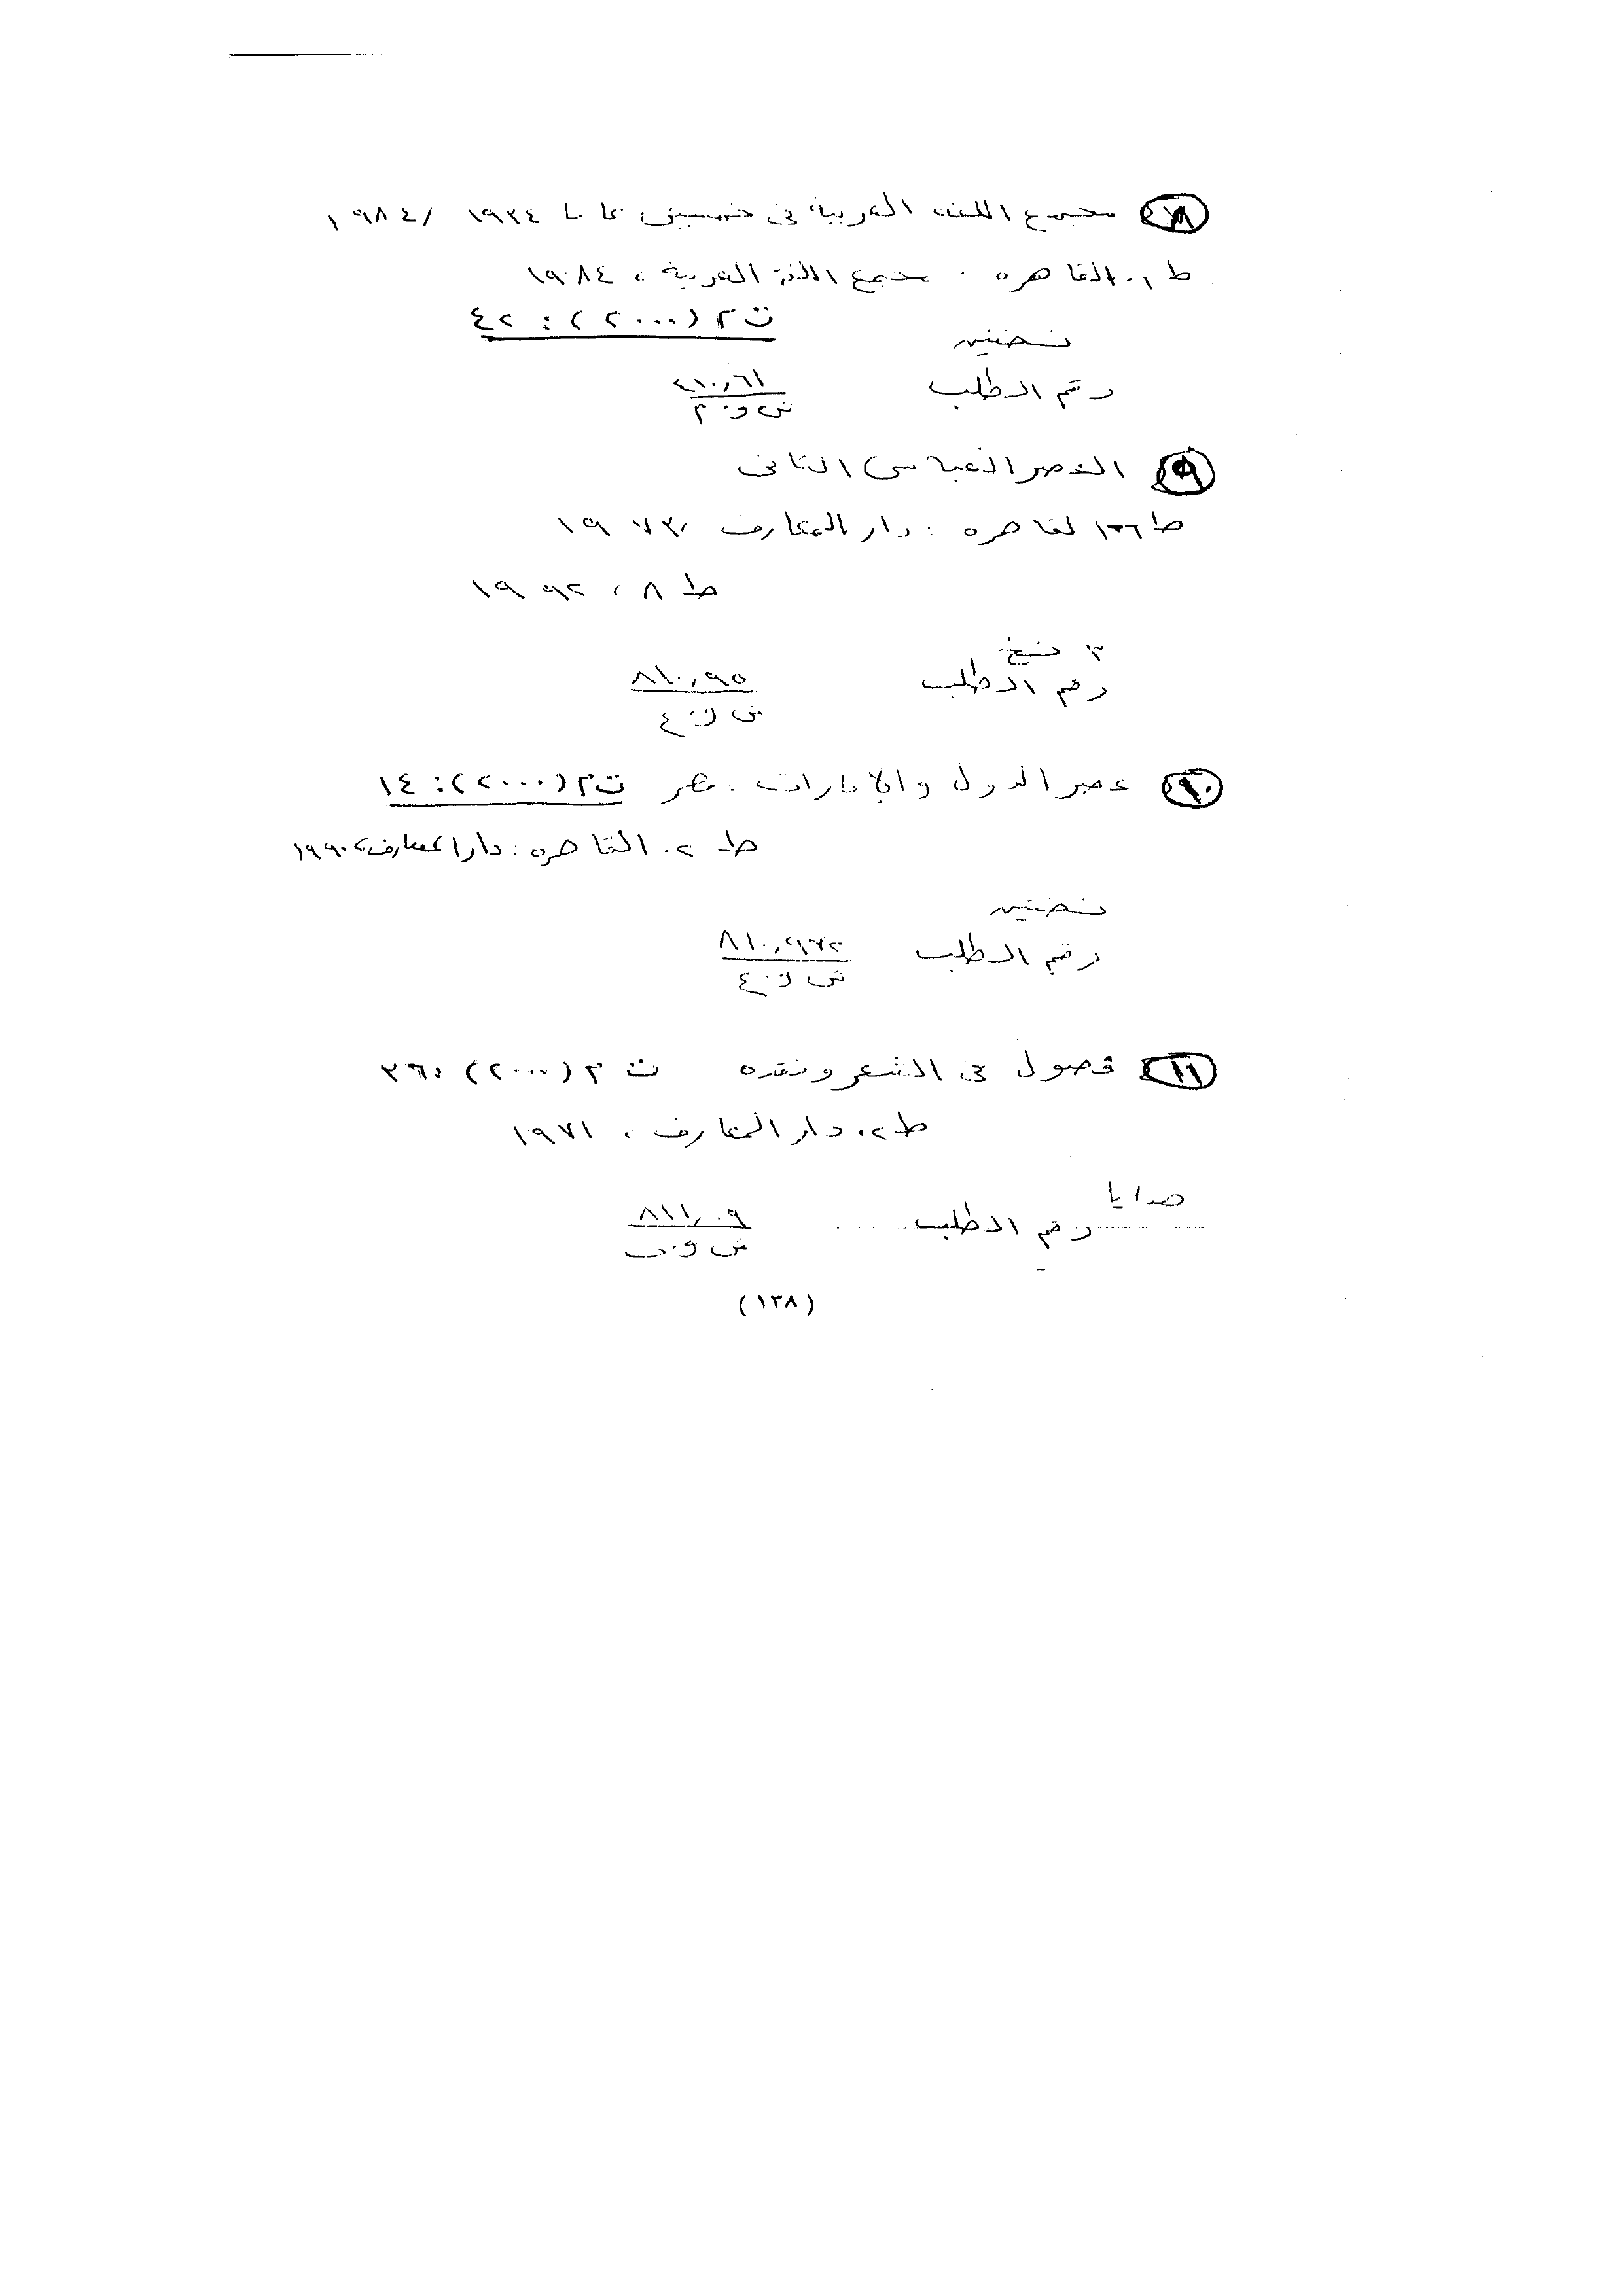 ٨ مجمع اللغة العربية في خمسين عاما ١٩٣٤ / ١٩٨٤
ط ١. القاهرة . مجمع اللغة العربية ، ١٩٨٤
ت٢ (٢٠٠٠) : ٤٢
نسختين
رقم الطلب ٤١٠,٦١
ش و . م
٩ العصر العباسى الثانى
القاهرة : دار المعارف ١٩٧٣
ط ٨ ، ١٩٩٢
٣ نسخ
رقم الطلب ٨١٠,٩٥
ش و . ع
١٠ عصر الدول والإمارات . مصر ت٢ (٢٠٠٠) : ١٤
ط ٢. القاهره : دار المعارف ، ١٩٩٠
نسختين
رقم الطلب ٨١٠,٩٧٢
ش و . ع
١١ فصول في الشعر ونقده ت ٢ (٢٠٠٠) : ٣٦
ط ٢. دار المعارف ، ١٩٧١
هدايا
رقم الطلب ٨١١,٠٩
ش و . ف
(١٣٨)